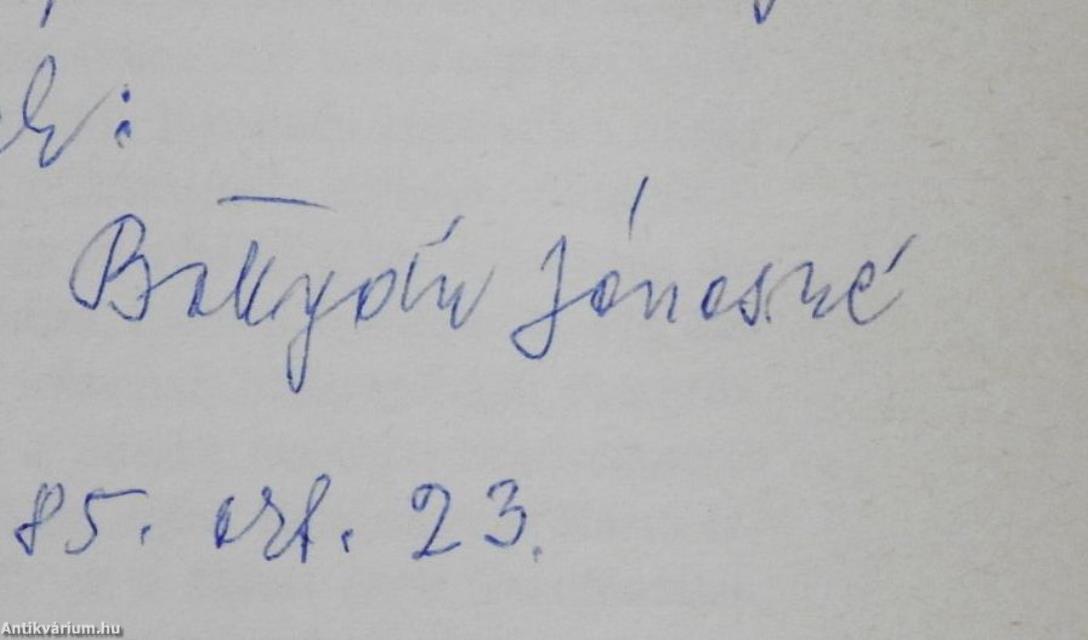 Bottyán Jánosné
85. okt. 23.
Antikvárium.hu